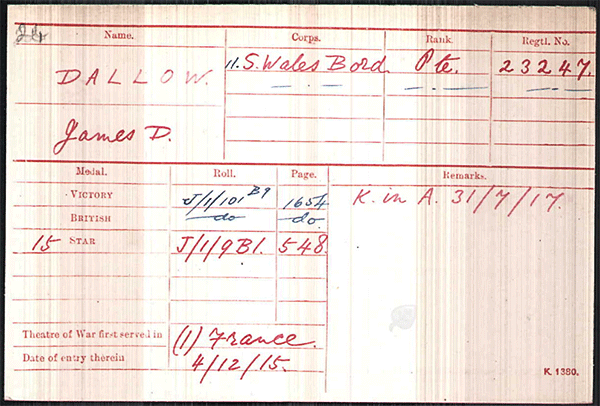 Name. Corps. Rank. Regtl. No.
DALLOW. 11.S.Wales Bord Pte. 23247.
James D.
Medal. Roll. Page. Remarks.
VICTORY J/1/101 B9 1654 K. in A. 31/7/17.
BRITISH do do
15 STAR J/1/9B1. 548.
Theatre of War first served in (1) France.
Date of entry therein 4/12/15.
K. 1380.